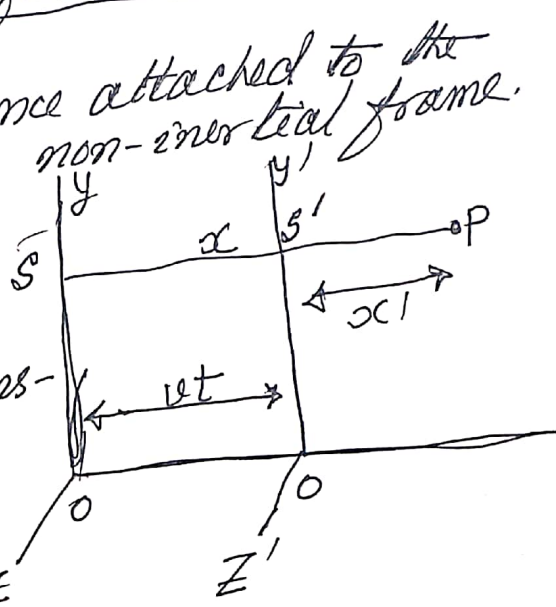 nce attached to the
non-inertial frame.
y y'
S x S' P
x'
es- vt
O O
Z'